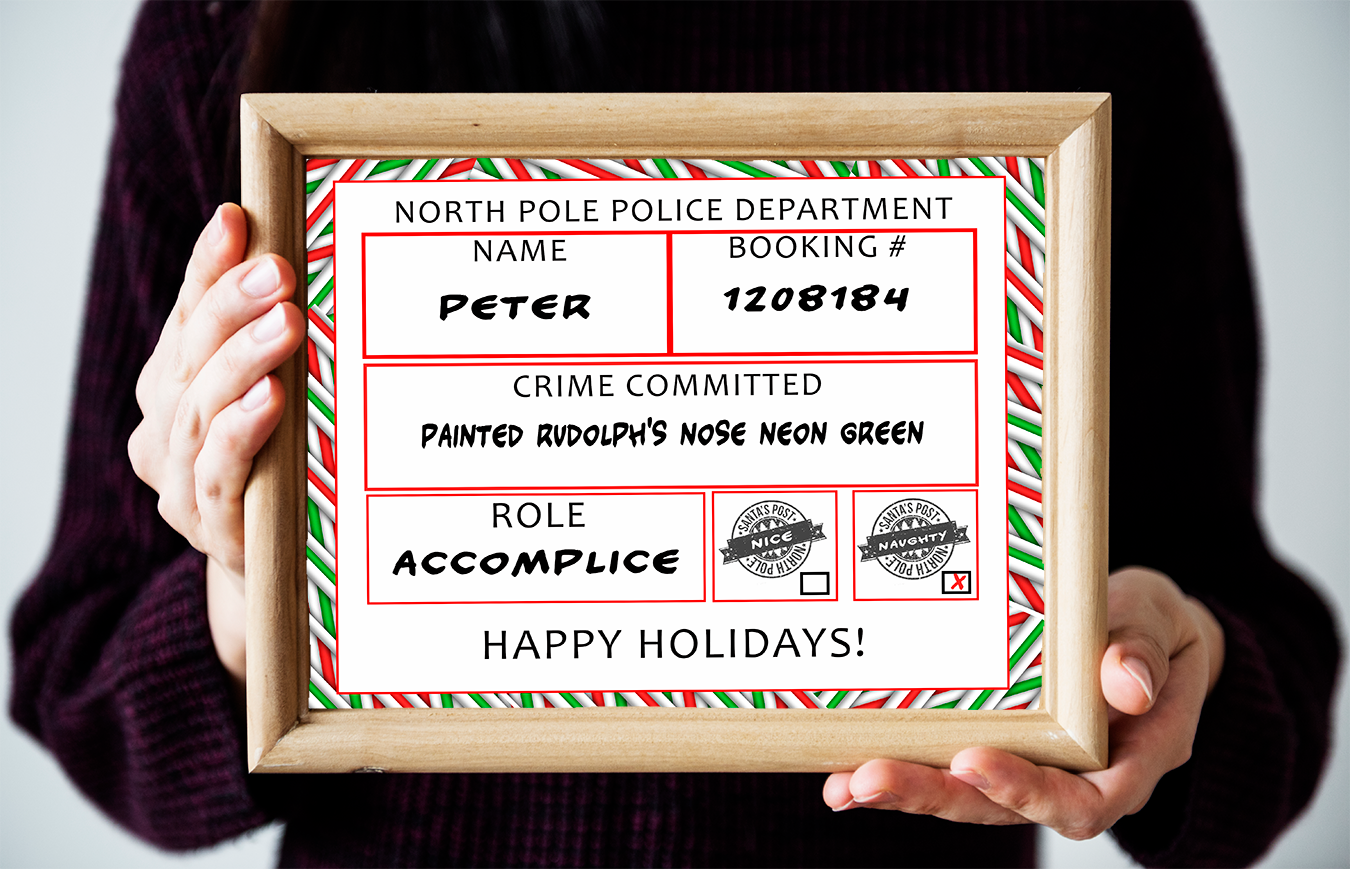 NORTH POLE POLICE DEPARTMENT
NAME
PETER
BOOKING #
1208184
CRIME COMMITTED
PAINTED RUDOLPH'S NOSE NEON GREEN
ROLE
ACCOMPLICE
SANTA'S POST
NICE
NORTH POLE
SANTA'S POST
NAUGHTY
NORTH POLE
X
HAPPY HOLIDAYS!